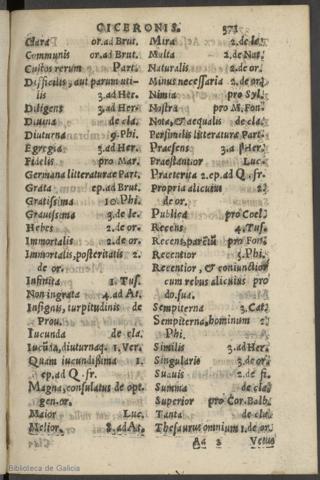 CICERONIS. 371
Clara or.ad Brut.
Communis or.ad Brut.
Custos rerum Part.
Difficilis, aut parum uti-
lis 3.ad Her.
Diligens 3.ad Her.
Diuina de cla.
Diuturna 9.Phi.
Egregia 3.ad Her.
Fidelis pro Mar.
Germana litteraturæ Part.
Grata ep.ad Brut.
Gratissima 10.Phi.
Grauissima 3.de le.
Hebes 2.de or.
Immortalis 2.de or.
Immortalis, posteritatis 2.
de or.
Infinita 1. Tus.
Non ingrata 4.ad At.
Insignis, turpitudinis de
Prou.
Iucunda de cla.
Iucũda, diuturnaq. 1.Ver.
Quam iucundissima 1.
ep.ad Q.fr.
Magna, consulatus de opt.
gen.or.
Maior Luc.
Melior. 8.ad At.
Mira 2.de le.
Multa 2.de Nat.
Naturalis 2.de or.
Minus necessaria 2.de or.
Nimia pro Syl.
Nostra pro M.Fon.
Nota, & æqualis de cla.
Persimilis litteraturæ Part.
Præsens 3.a Her.
Præstantior Luc.
Præterita 2.ep.ad Q.fr.
Propria alicuius 2.
de or.
Publica pro Coel.
Recens 4.Tus.
Recens, parẽtũ pro Fon.
Recentior 3.Phi.
Recentior, & coniunctior
cum rebus alicuius pro
do.sua.
Sempiterna 3.Cat.
Sempiterna, hominum 2.
Phi.
Similis 3.ad Her.
Singularis 3.de or.
Suauis 2.de fi.
Summa de cla.
Superior pro Cor.Balb.
Tanta de cla.
Thesaurus omnium 1.de or.
Aa 2 Vetus
Biblioteca de Galicia